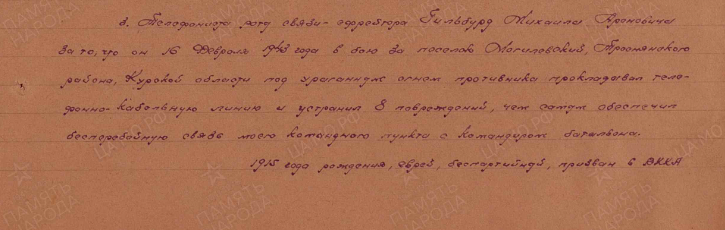 6. Телефониста роту связи - ефрейтора Гильбурд Михаила Ароновича
за то, что он 16 Февраля 1943 года в бою за поселок Могилевский, Тросянского
района, Курской области под ураганным огнем противника прокладывал теле-
фонно-кабельную линию и устранил 8 повреждений, чем самым обеспечил
бесперебойную связь моего командного пункта с командиром батальона.
1915 года рождения, еврей, беспартийный, призван в РККА